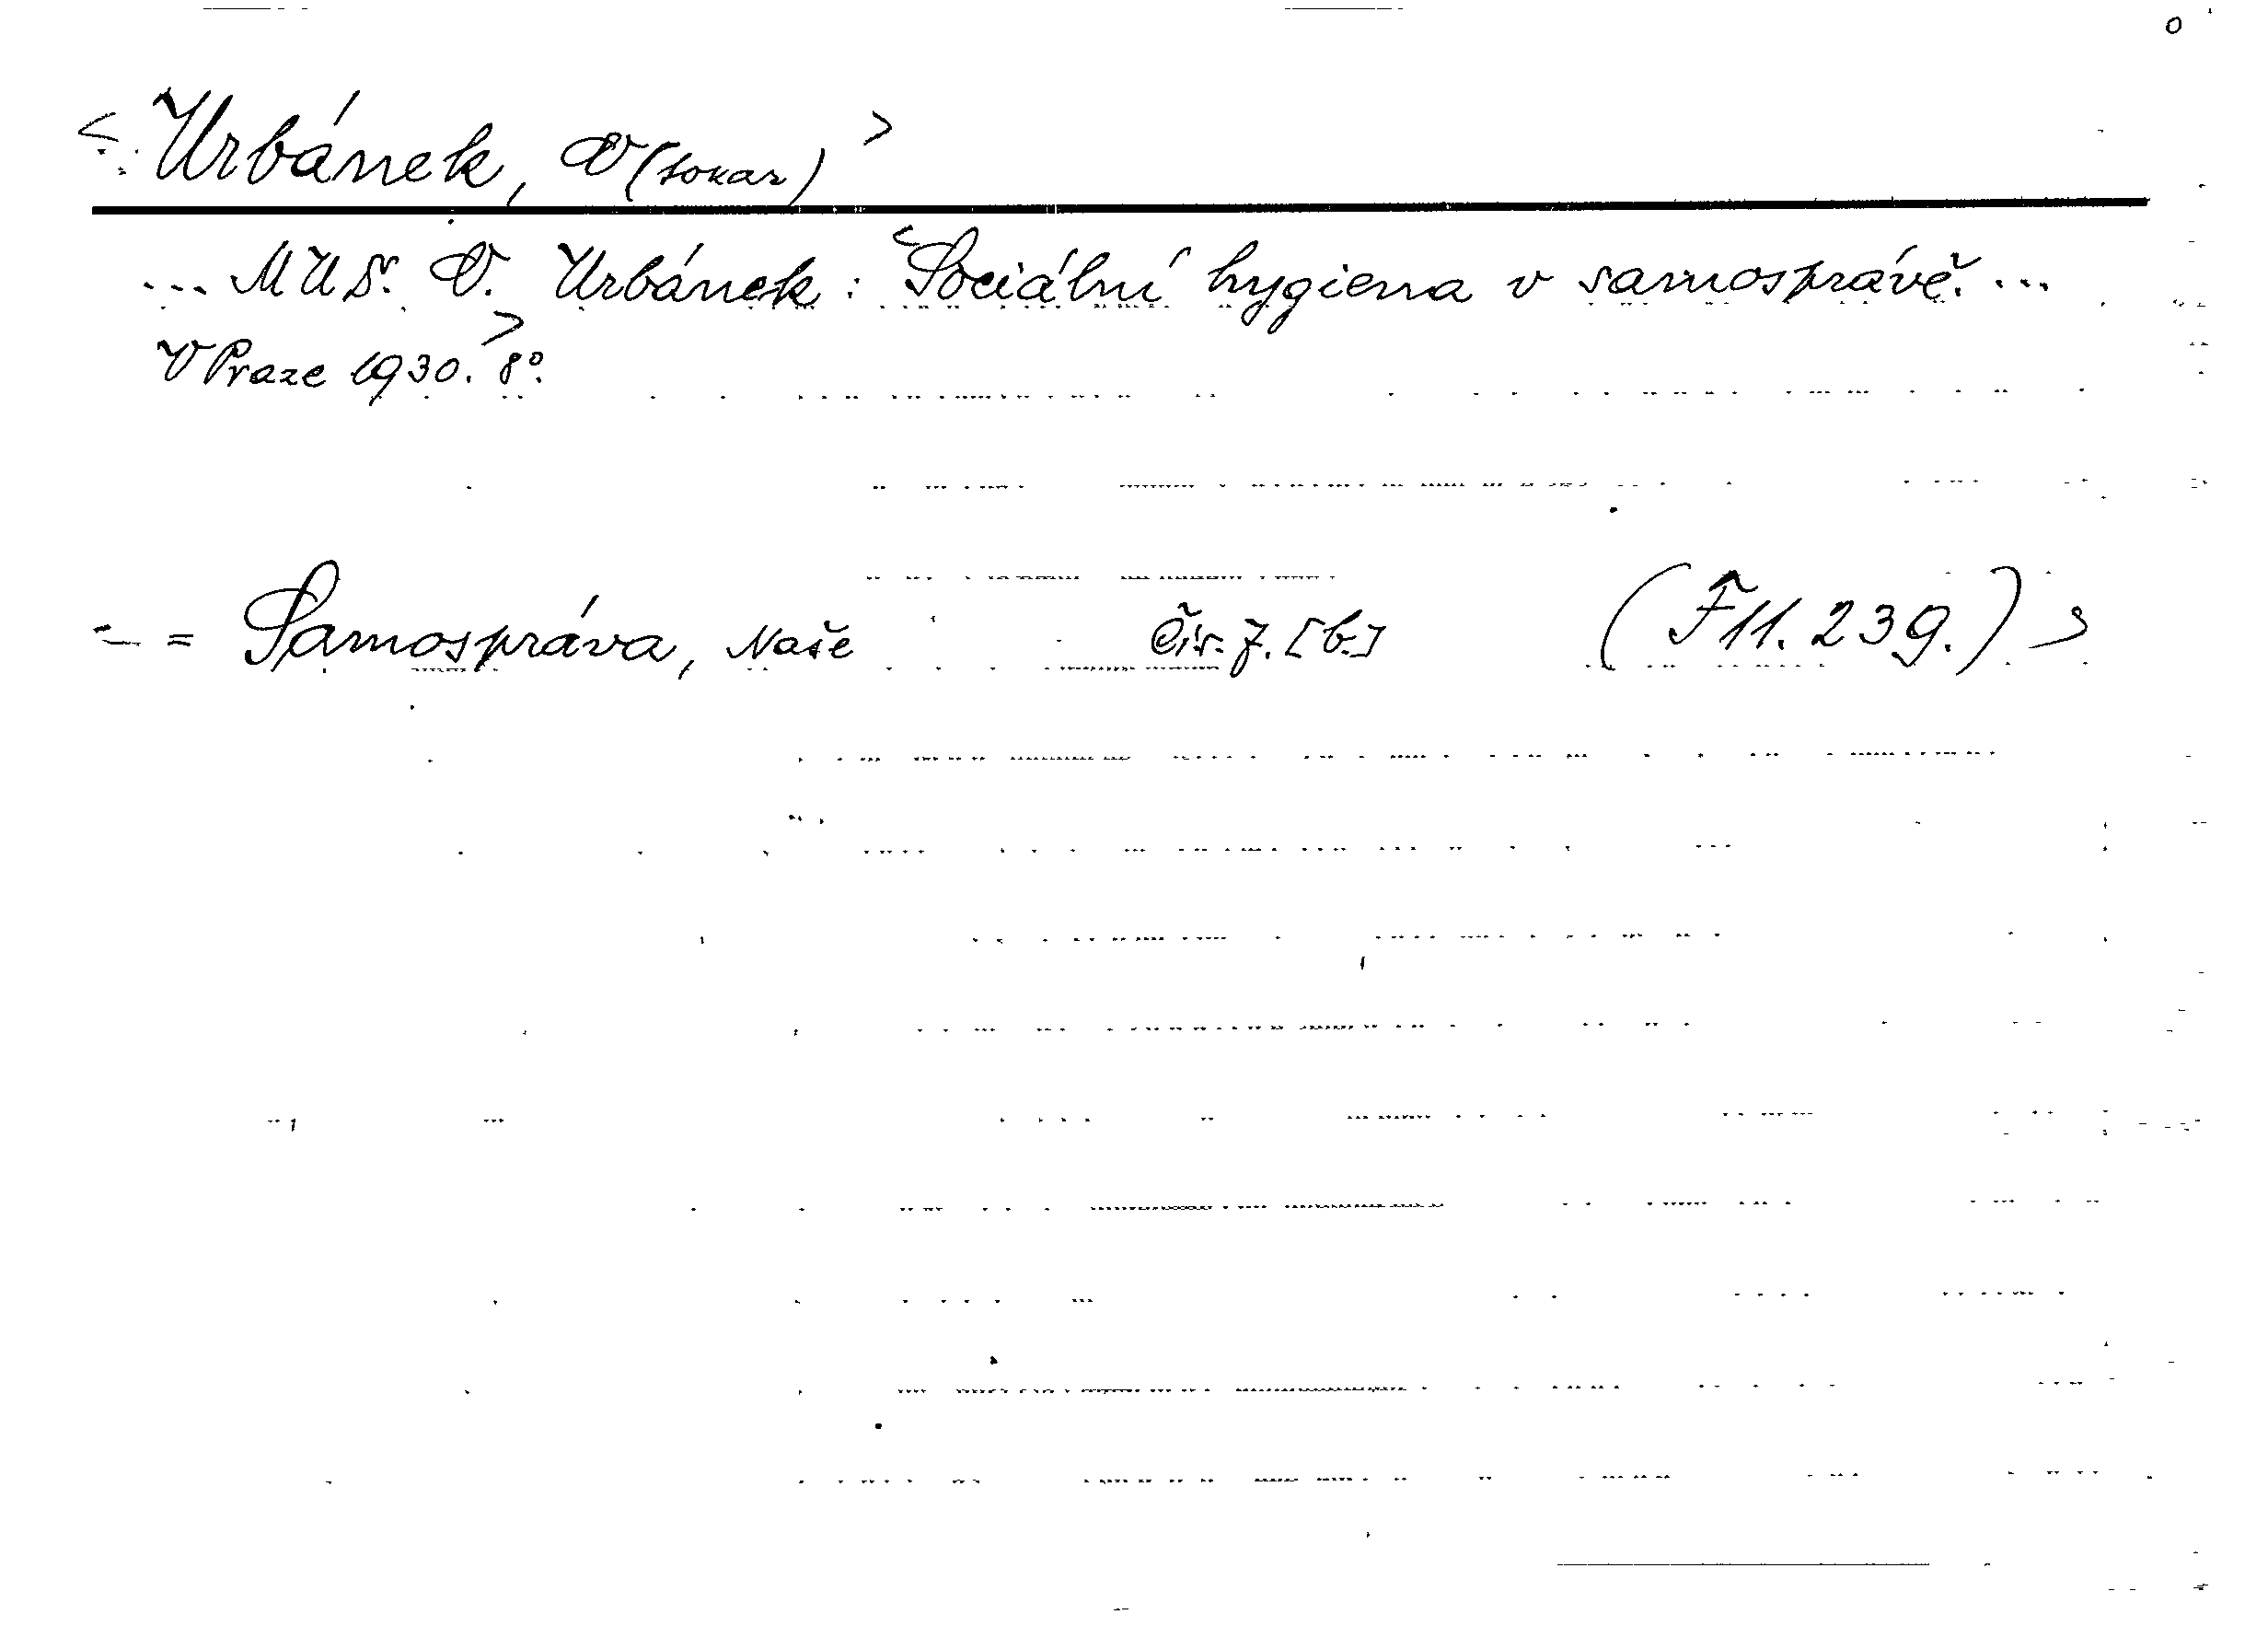 <Urbánek, O(tokar)>
... MUDr. O. Urbánek: <Sociální hygiena v samosprávě. ...
V Praze 1930.> 8°.
<= Samospráva, Naše Čís. 7. [b.] (F 11.239.)>